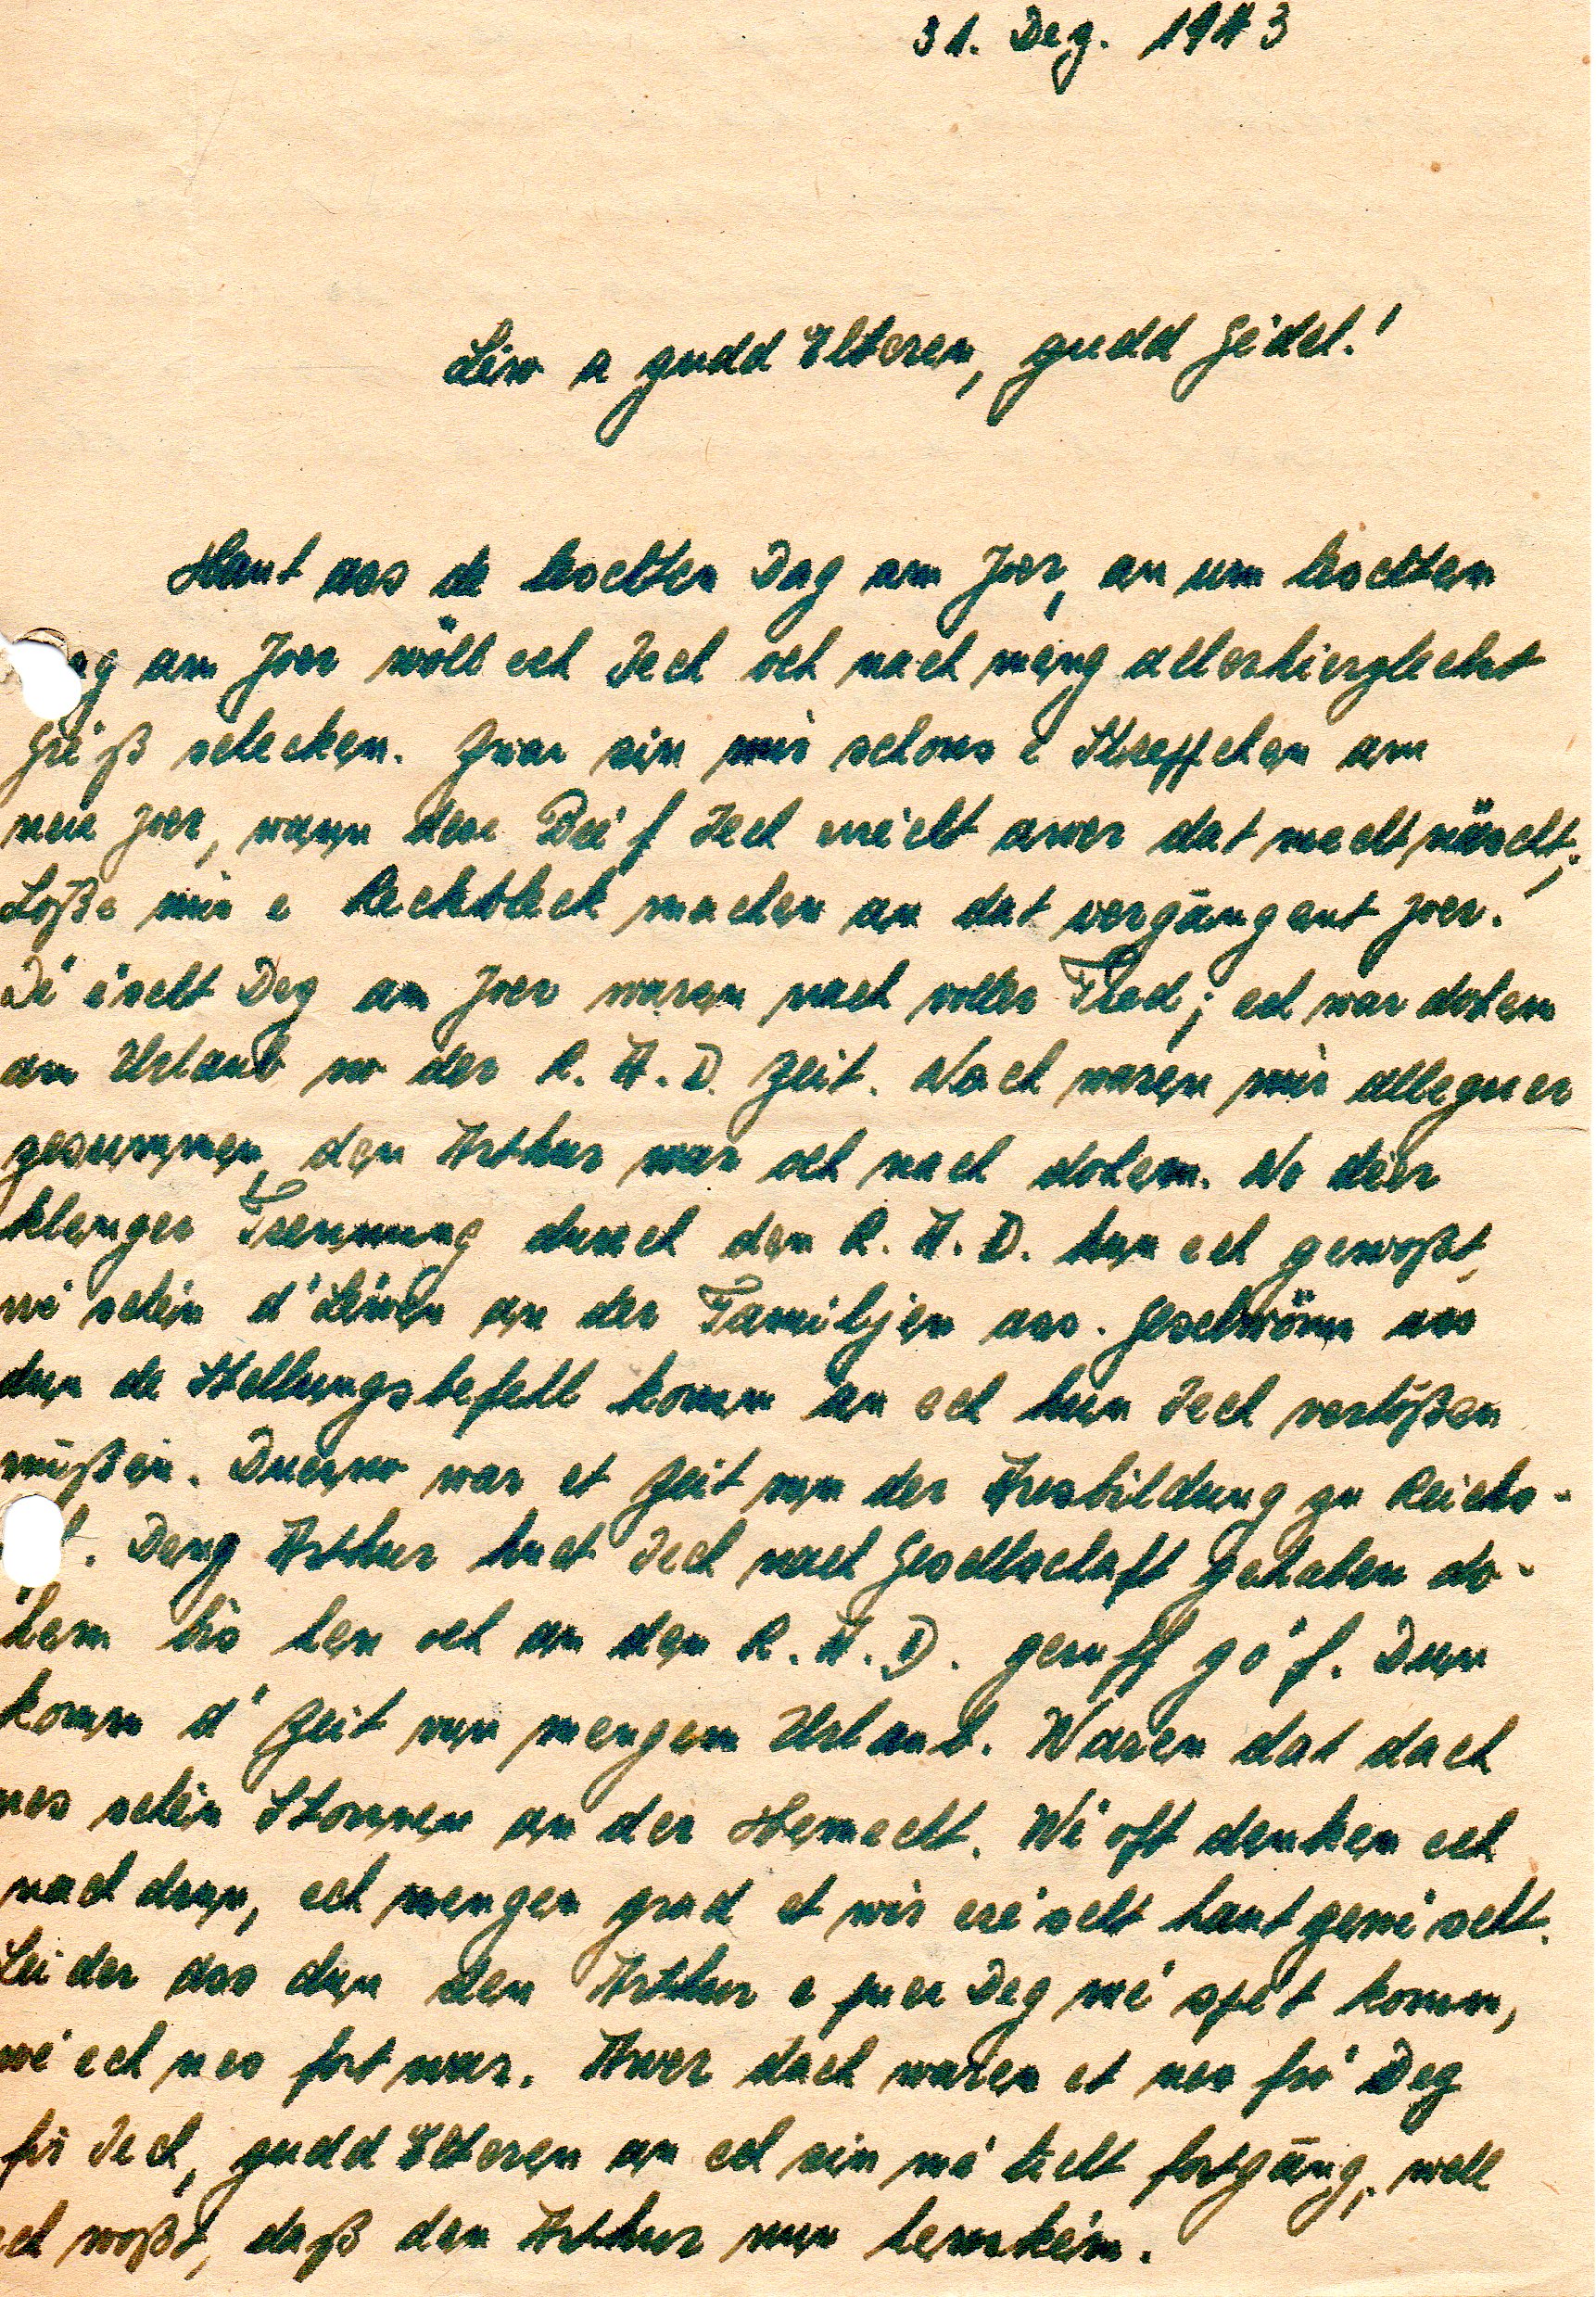 31. Dez. 1943
Léiw a gudd Elteren, gudd Gédel!
Haut ass de leschten Dag am Joer, an um leschten
ag am Joer wöll ech Iech och nach meng allerhierzlechst
Gréiß schecken. Zwar sin mir schons e Steffchen am
neie Joer, wann den Bréif Iech erréicht awer dat mecht näischt,
Loße mir e Reckbleck machen an dat vergāngent Joer.
Déi éischt Deg am Joer waren nach voller Fred; ech war dohem
am Urlaub vo der R. A. D. Zeit. Nach waren mir alleguer
zesummen, den Arthur war och nach dohem. No déer
klenger Trennung duerch den R. A. D. hun ech gewoßt,
wi schéin d'Léiwen an der Familjen ass. Geschwönn ass
dun de Stellungsbefehl komm an ech hun Iech verlōßen
mūßen. Duerno war et Zeit vun der Ausbildung zu Reichs-
. Deng Arthur huet Iech nach Gesellschaft gehalen do-
hem bis hen och an den R. A. D. geruff gouf. Dun
komm d'Zeit vun mengem Urlaub. Waren dat dach
nes schéin Stonnen an der Hemecht. Wi oft denken ech
nach drun, ech mengen grad et wir eréischt haut gewiescht.
Leider ass dun den Arthur e puer Deg méi spéit komm,
wé ech nes fort war. Awer dach waren et nes fréi Deg
fir Iech, gudd Elteren an ech sin méi liecht fortgāng, well
ech woßt, daß den Arthur nun hemkéim.